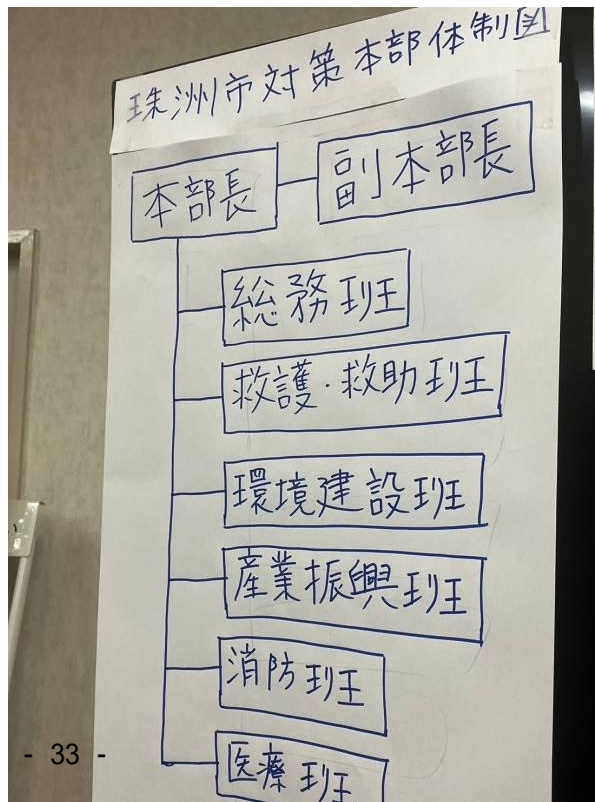 珠洲市対策本部体制図
本部長
副本部長
総務班
救護・救助班
環境建設班
産業振興班
消防班
医療班
- 33 -